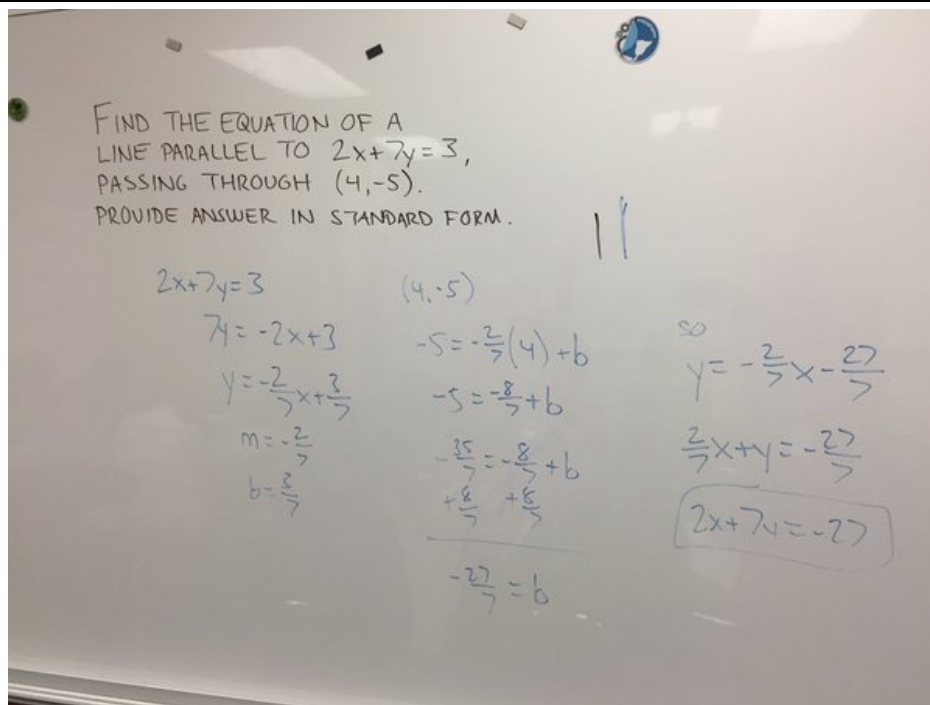 FIND THE EQUATION OF A
LINE PARALLEL TO 2x+7y=3,
PASSING THROUGH (4,-5).
PROVIDE ANSWER IN STANDARD FORM.
2x+7y=3
7y=-2x+3
y=-2/7x+3/7
m=-2/7
b=3/7
(4,-5)
-5=-2/7(4)+b
-5=-8/7+b
-35/7=-8/7+b
+8/7 +8/7
-27/7=b
so
y=-2/7x-27/7
2/7x+y=-27/7
2x+7y=-27